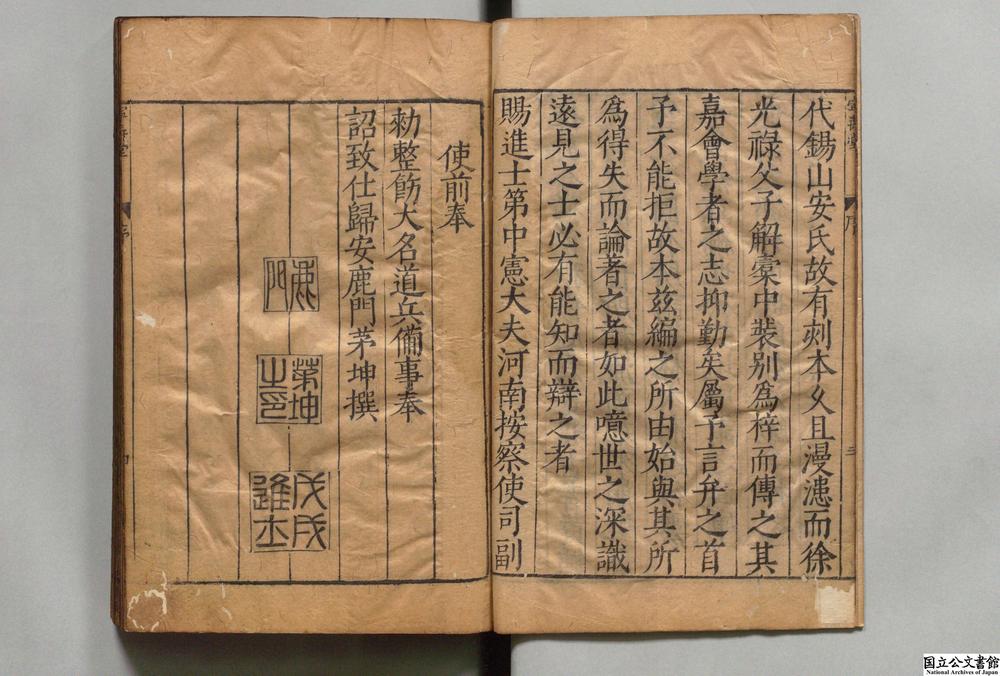 代錫山安氏故有刻本久且漫漶而徐
光祿父子解槖中裝别爲梓而傳之其
嘉會學者之志抑勤矣屬予言弁之首
予不能拒故本兹編之所由始與其所
爲得失而論著之者如此噫世之深識
遠見之士必有能知而辯之者
賜進士第中憲大夫河南按察使司副
使前奉
勑整飭大名道兵備事奉
詔致仕歸安鹿門茅坤撰
鹿門
茅坤之印
戊戌進士
序
三
国立公文書館
National Archives of Japan